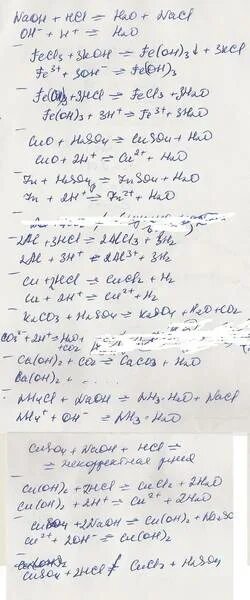 NaOH + HCl = H2O + NaCl
OH⁻ + H⁺ = H2O
FeCl3 + 3KOH = Fe(OH)3↓ + 3KCl
Fe³⁺ + 3OH⁻ = Fe(OH)3
Fe(OH)3 + 3HCl = FeCl3 + 3H2O
Fe(OH)3 + 3H⁺ = Fe³⁺ + 3H2O
CuO + H2SO4 = CuSO4 + H2O
CuO + 2H⁺ = Cu²⁺ + H2O
Zn + H2SO4 = ZnSO4 + H2O
Zn + 2H⁺ = Zn²⁺ + H2O
2Al + 3HCl = 2AlCl3 + 3H2
2Al + 3H⁺ = 2Al³⁺ + 3H2
Cu + 2HCl = CuCl2 + H2
Cu + 2H⁺ = Cu²⁺ + H2
K2CO3 + H2SO4 = K2SO4 + H2O + CO2
CO3²⁻ + 2H⁺ = H2O + CO2
Ca(OH)2 + CO2 = CaCO3 + H2O
Ca(OH)2 + . . .
NH4Cl + NaOH = NH3·H2O + NaCl
NH4⁺ + OH⁻ = NH3·H2O
CuSO4 + NaOH + HCl =
= некорректная
Cu(OH)2 + 2HCl = CuCl2 + 2H2O
Cu(OH)2 + 2H⁺ = Cu²⁺ + 2H2O
CuSO4 + 2NaOH = Cu(OH)2 + Na2SO4
Cu²⁺ + 2OH⁻ = Cu(OH)2
CuSO4 + 2HCl ≠ CuCl2 + H2SO4